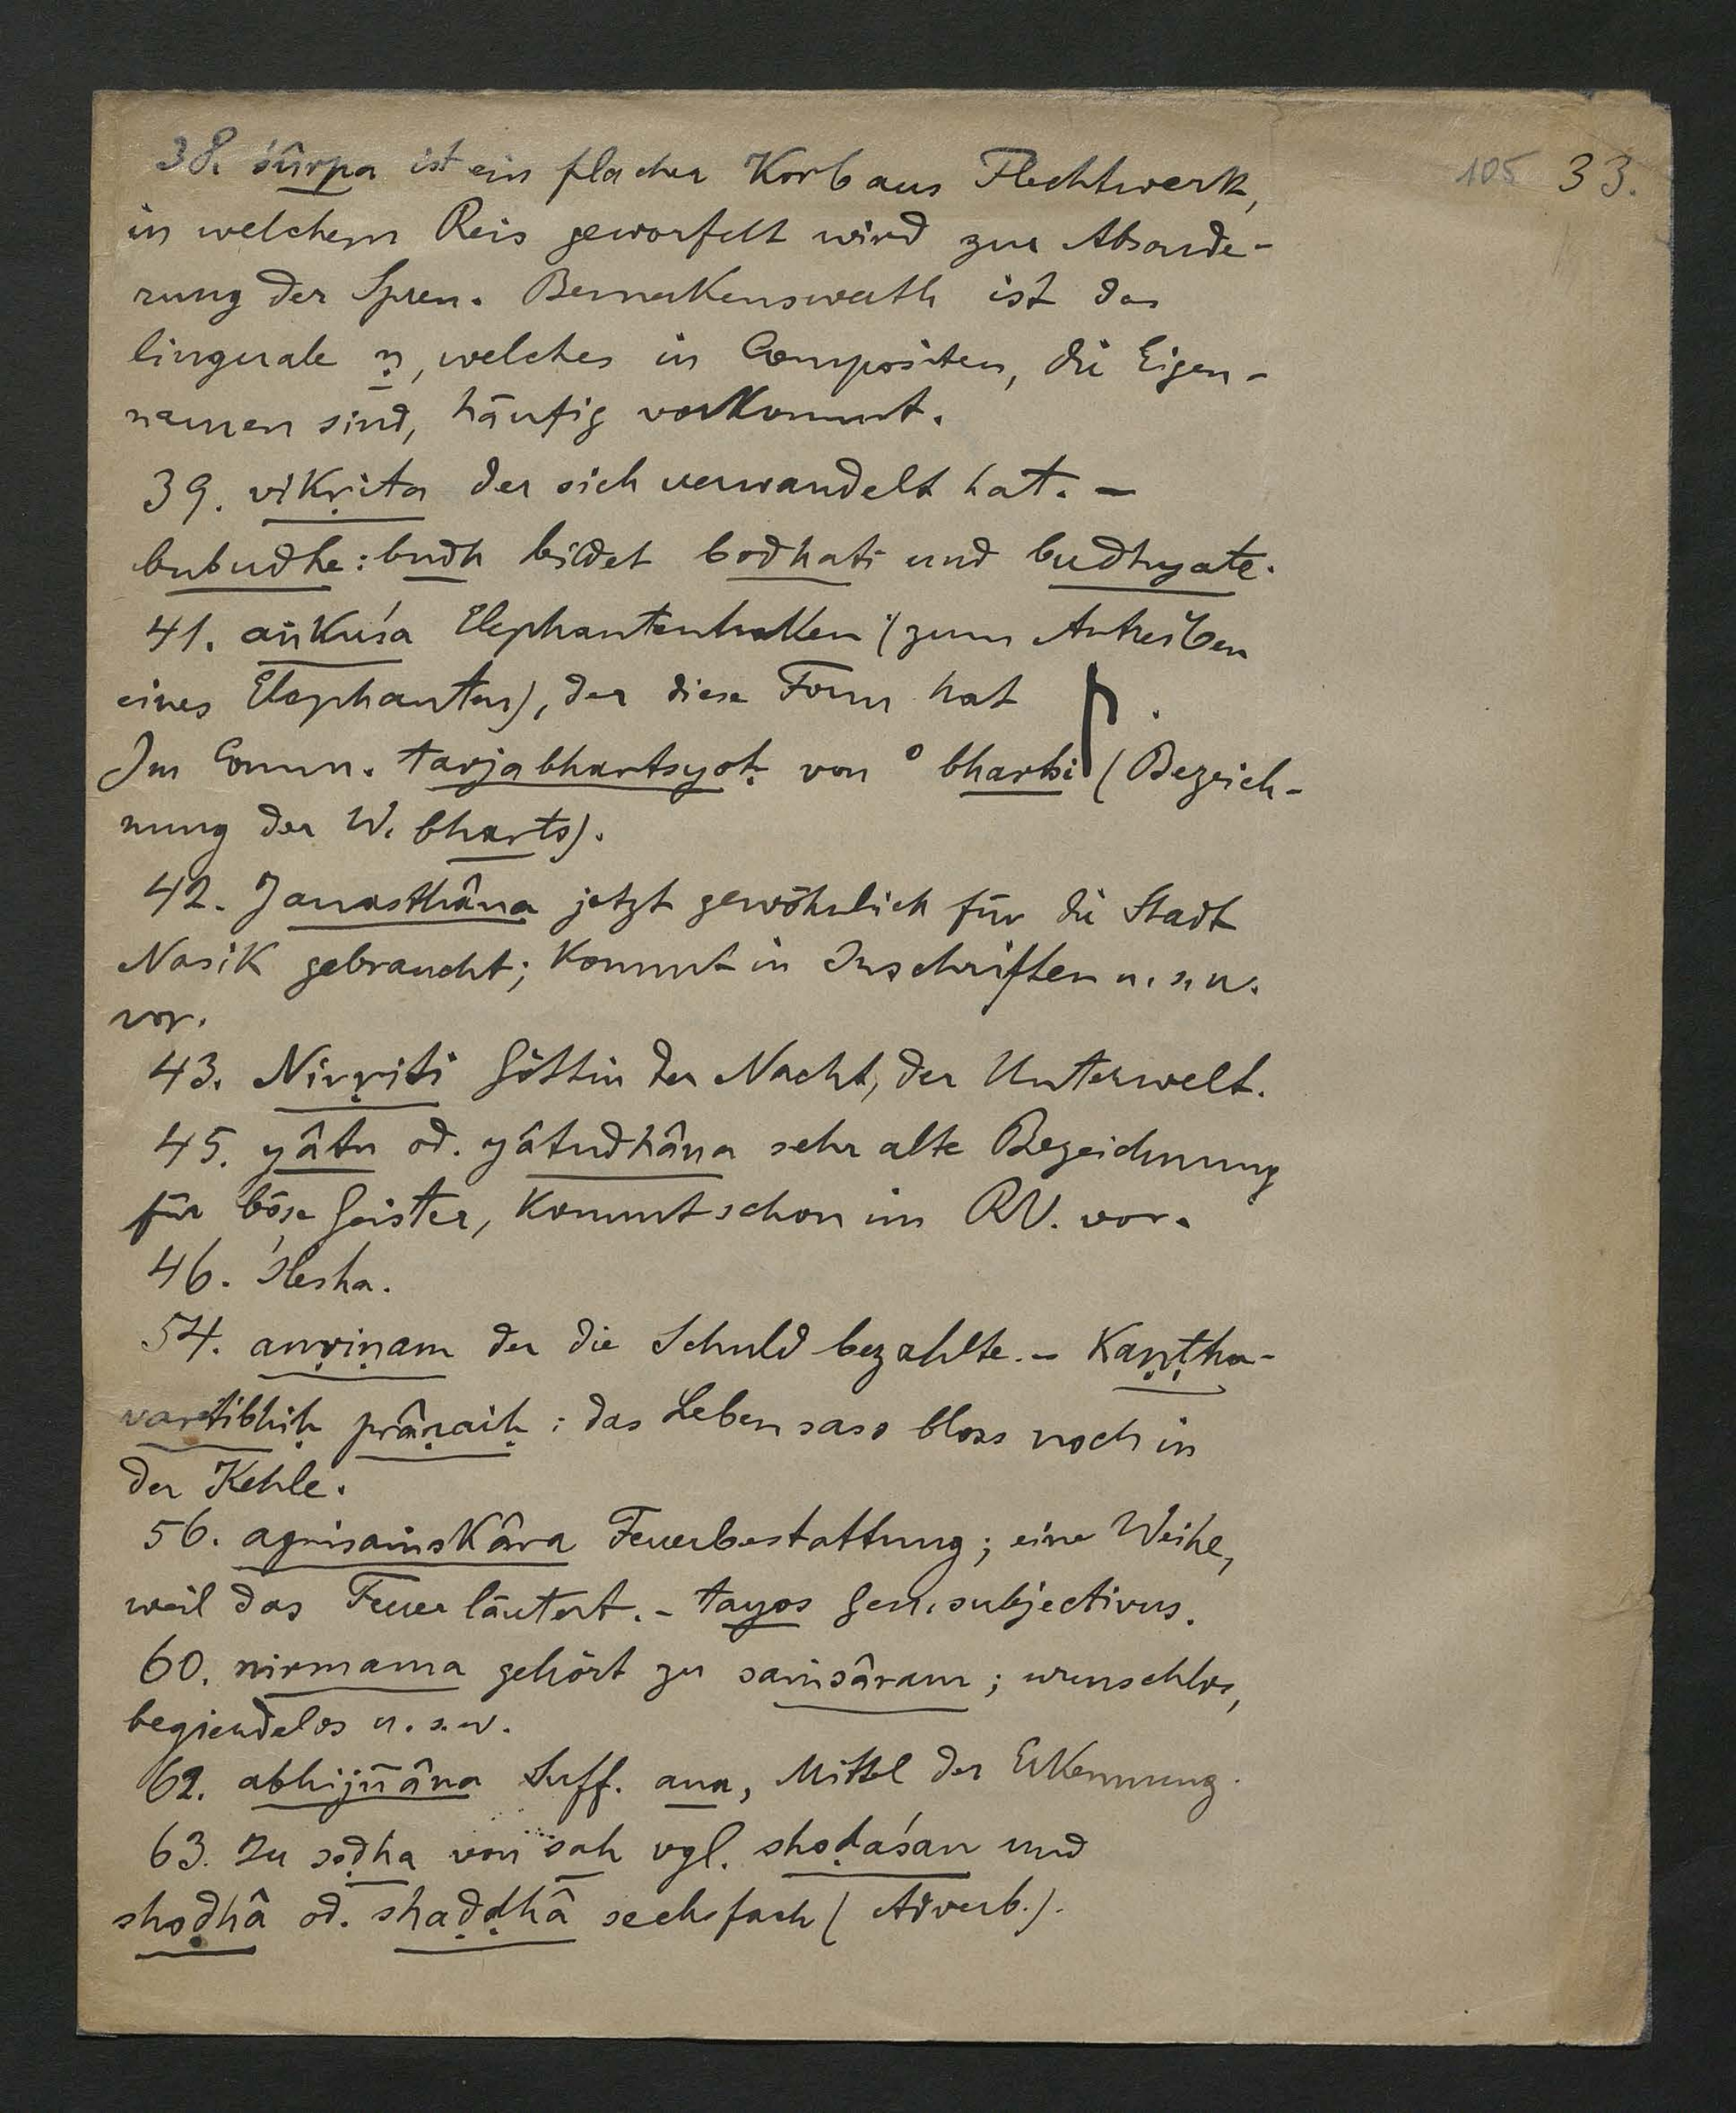 105 33.
38. śûrpa ist ein flacher Korb aus Flechtwerk,
in welchem Reis geworfelt wird zur Absonde-
rung der Spreu. Bemerkenswerth ist das
linguale ṇ, welches in Compositen, die Eigen-
namen sind, häufig vorkommt.
39. vikṛita der sich verwandelt hat. –
bubudhe: budh bildet bodhati und budhyate.
41. aṅkuśa Elephantenhaken (zum Antreiben
eines Elephanten), der diese Form hat .
Im Comm. tarjabhartsyoḥ von ° bhartsi (Bezeich-
nung der W. bharts).
42. Janasthâna jetzt gewöhnlich für die Stadt
Nasik gebraucht; kommt in Inschriften u. s. w.
vor.
43. Nirṛiti Göttin der Nacht, der Unterwelt.
45. yâtu od. yâtudhâna sehr alte Bezeichnung
für böse Geister, kommt schon im RV. vor.
46. ślesha.
54. anṛiṇam der die Schuld bezahlte. – Kaṇṭha-
vartibhiḥ prâṇaiḥ: das Leben sass bloss noch in
der Kehle.
56. agnisaṁskâra Feuerbestattung; eine Weihe,
weil das Feuer läutert. – tayos Gen. subjectivus.
60. nirmama gehört zu saṁsâram; wunschlos,
begierdelos u. s. w.
62. abhijñâna Suff. ana, Mittel der Erkennung.
63. Zu soḍha von sah vgl. shoḍaśan und
shoḍhâ od. shaḍḍhâ sechsfach (Adverb.).